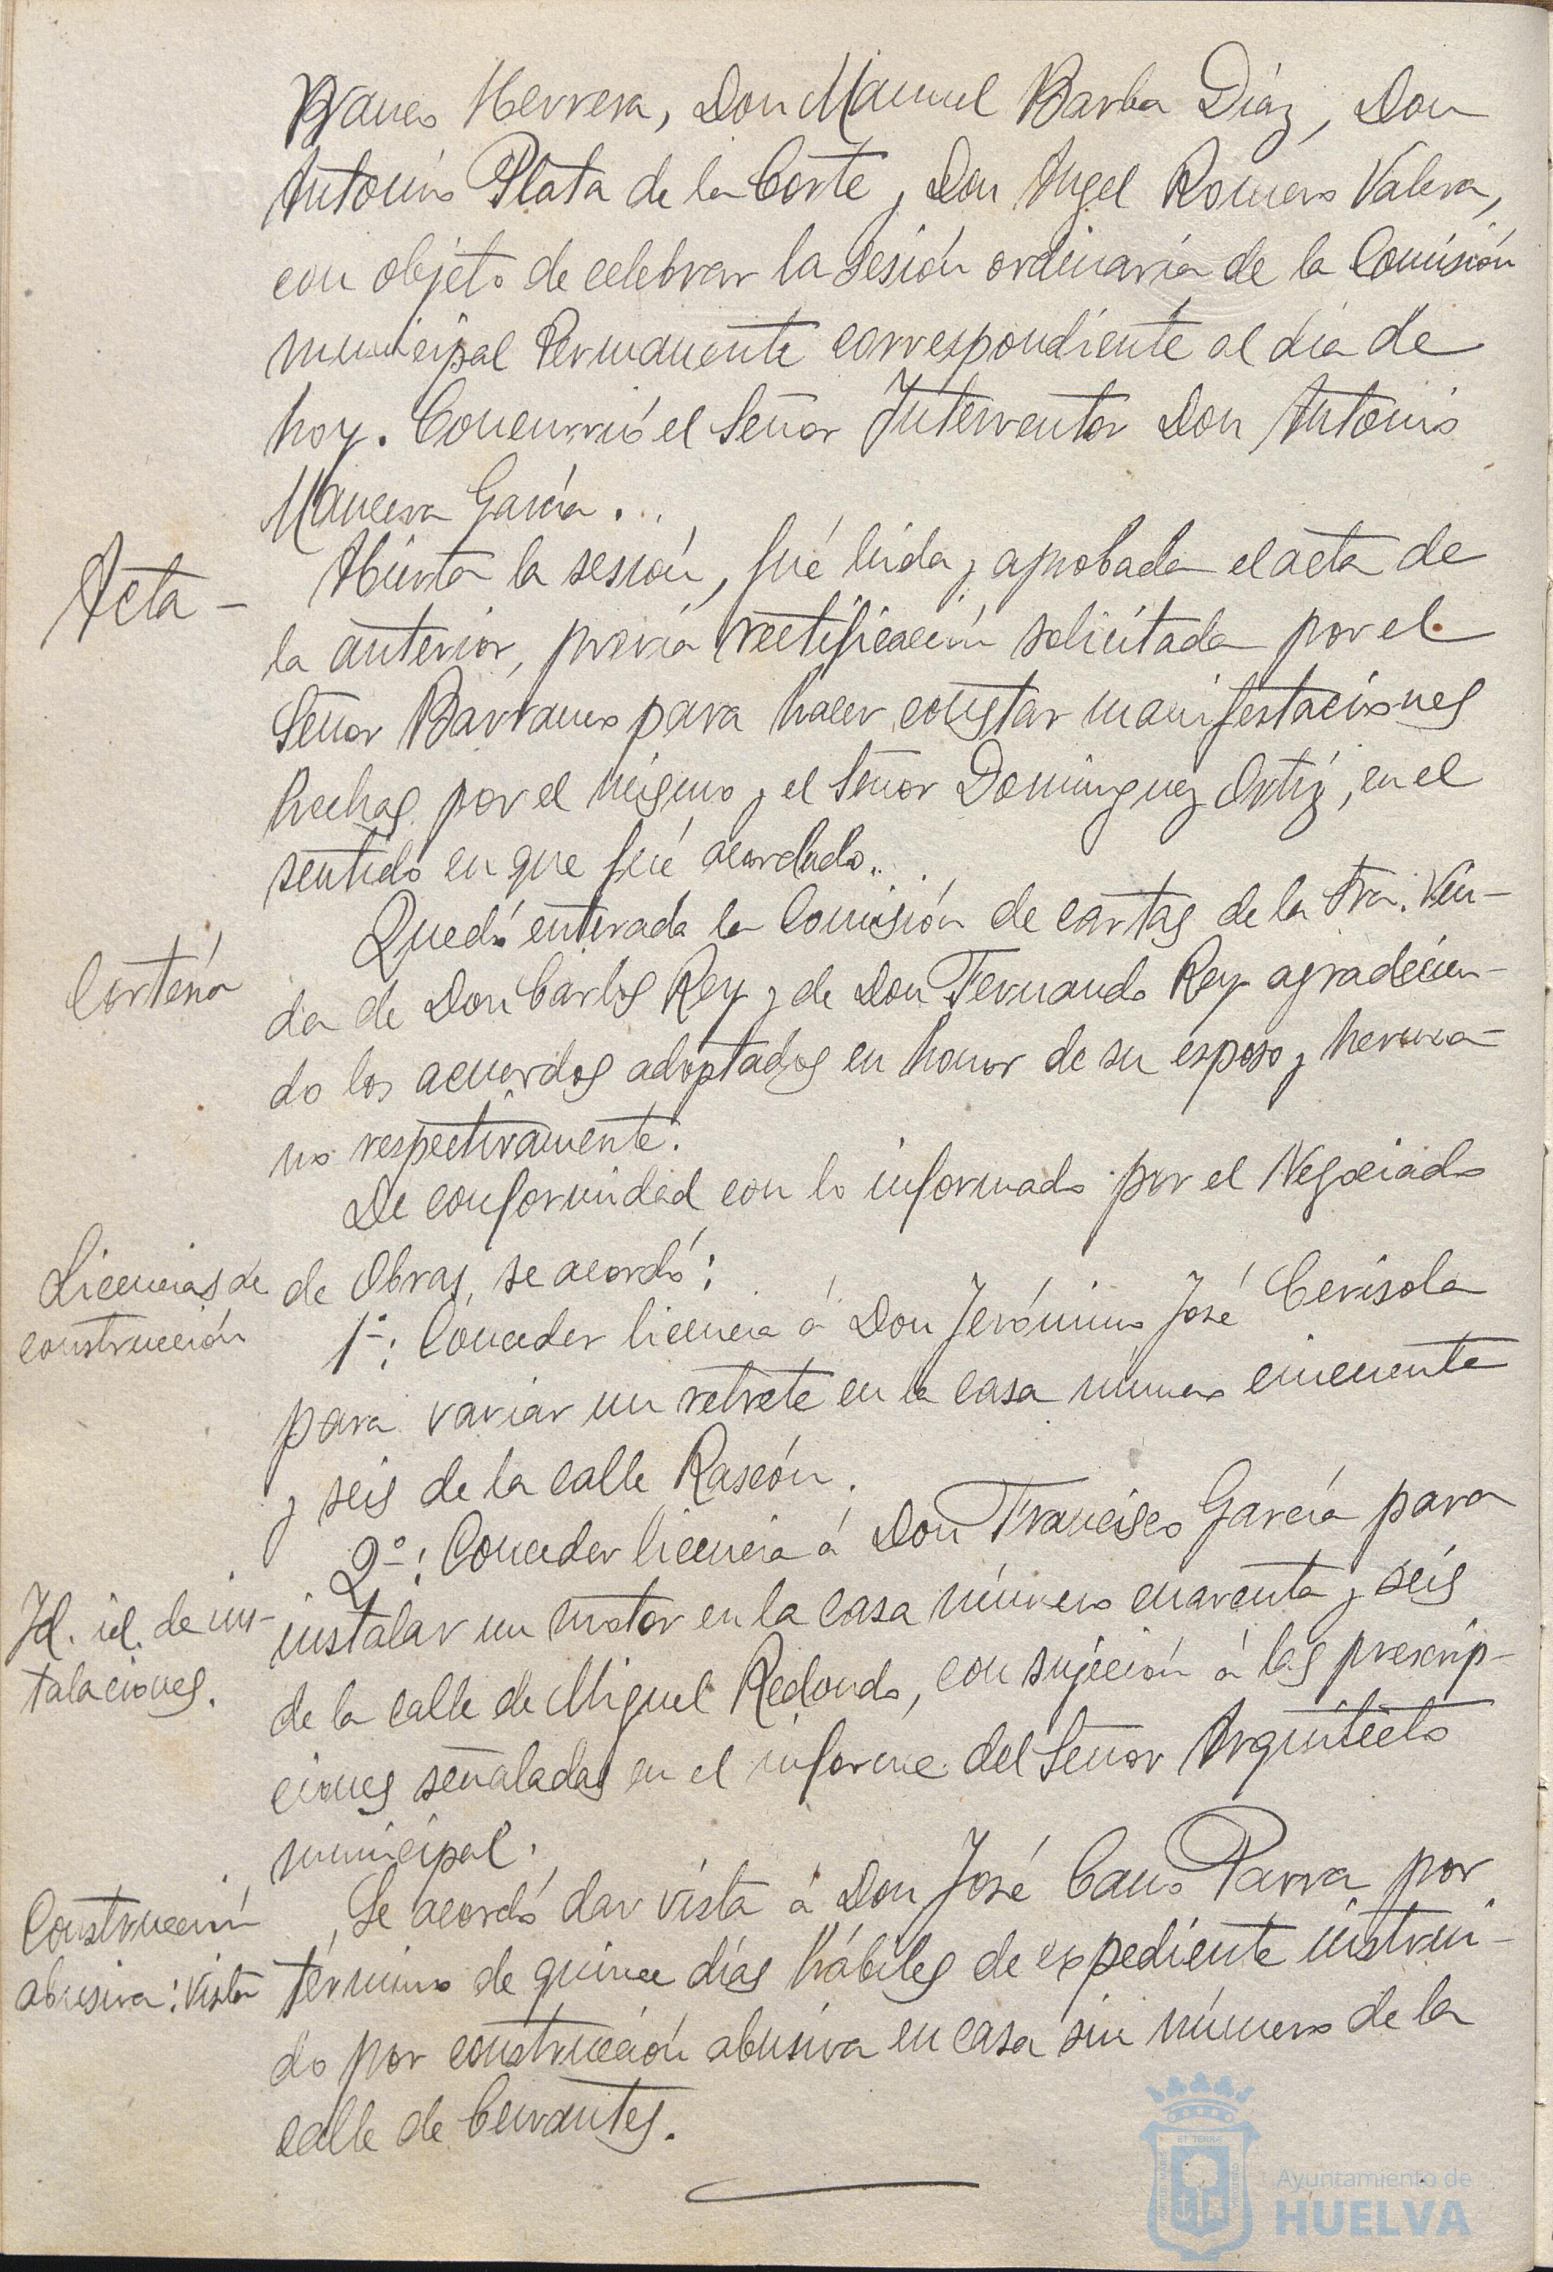 Herrera, Don Manuel Barba Díaz, Don
Antonio Plata de la Corte y Don Angel Romero Valera,
con objeto de celebrar la sesión ordinaria de la Comisión
municipal Permanente correspondiente al día de
hoy. Concurrió el Señor Interventor Don Antonio
García.
Acta -
Abierta la sesión, fué leida y aprobada el acta de
la anterior, previa rectificación solicitada por el
Señor Barranco para hacer constar manifestaciones
hechas por el mismo y el Señor Dominguez Ortiz, en el
sentido en que fué acordado.
Cortesía
Quedó enterada la Comisión de cartas de la Sra. Viu-
da de Don Carlos Rey y de Don Fernando Rey agradecien-
do los acuerdos adoptados en honor de su esposo y herma-
no respectivamente.
De conformidad con lo informado por el Negociado
de Obras, se acordó:
Licencias de
construcción
1º: Conceder licencia á Don Jerónimo José Cerisola
para variar un retrete en la casa número cincuenta
y seis de la calle Rascón.
2º: Conceder licencia á Don Francisco García para
Id. id. de ins-
talaciones.
instalar un motor en la casa número cuarenta y seis
de la calle de Miguel Redondo, con sujeción á las prescrip-
ciones señaladas en el informe del Señor Arquitecto
municipal.
Construcción
abusiva: Vista
Se acordó dar vista á Don José Cano Parra por
término de quince días hábiles de expediente instrui-
do por construcción abusiva en casa sin número de la
calle de Cervantes.
Ayuntamiento de
HUELVA